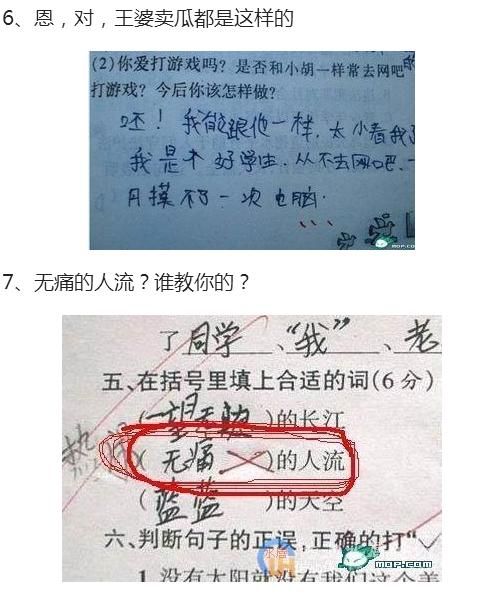 6、恩，对，王婆卖瓜都是这样的
(2)你爱打游戏吗？是否和小胡一样常去网吧
打游戏？今后你该怎样做？
呸！我能跟他一样，太小看我
我是 好学生．从不去网吧．一
月摸不了一次电脑．
MOP.COM
7、无痛的人流？谁教你的？
了同学、“我”、老
五、在括号里填上合适的词(6分)
(一望无 )的长江
(无痛)的人流
(蓝蓝)的天空
六、判断句子的正误，正确的打“✓
1.没有太阳就没有我们这个美
MOP.COM